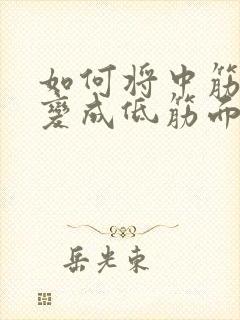 如何将中筋
变成低筋而
岳光東